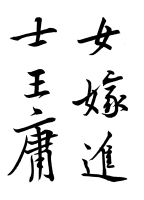 女嫁進
士王庸